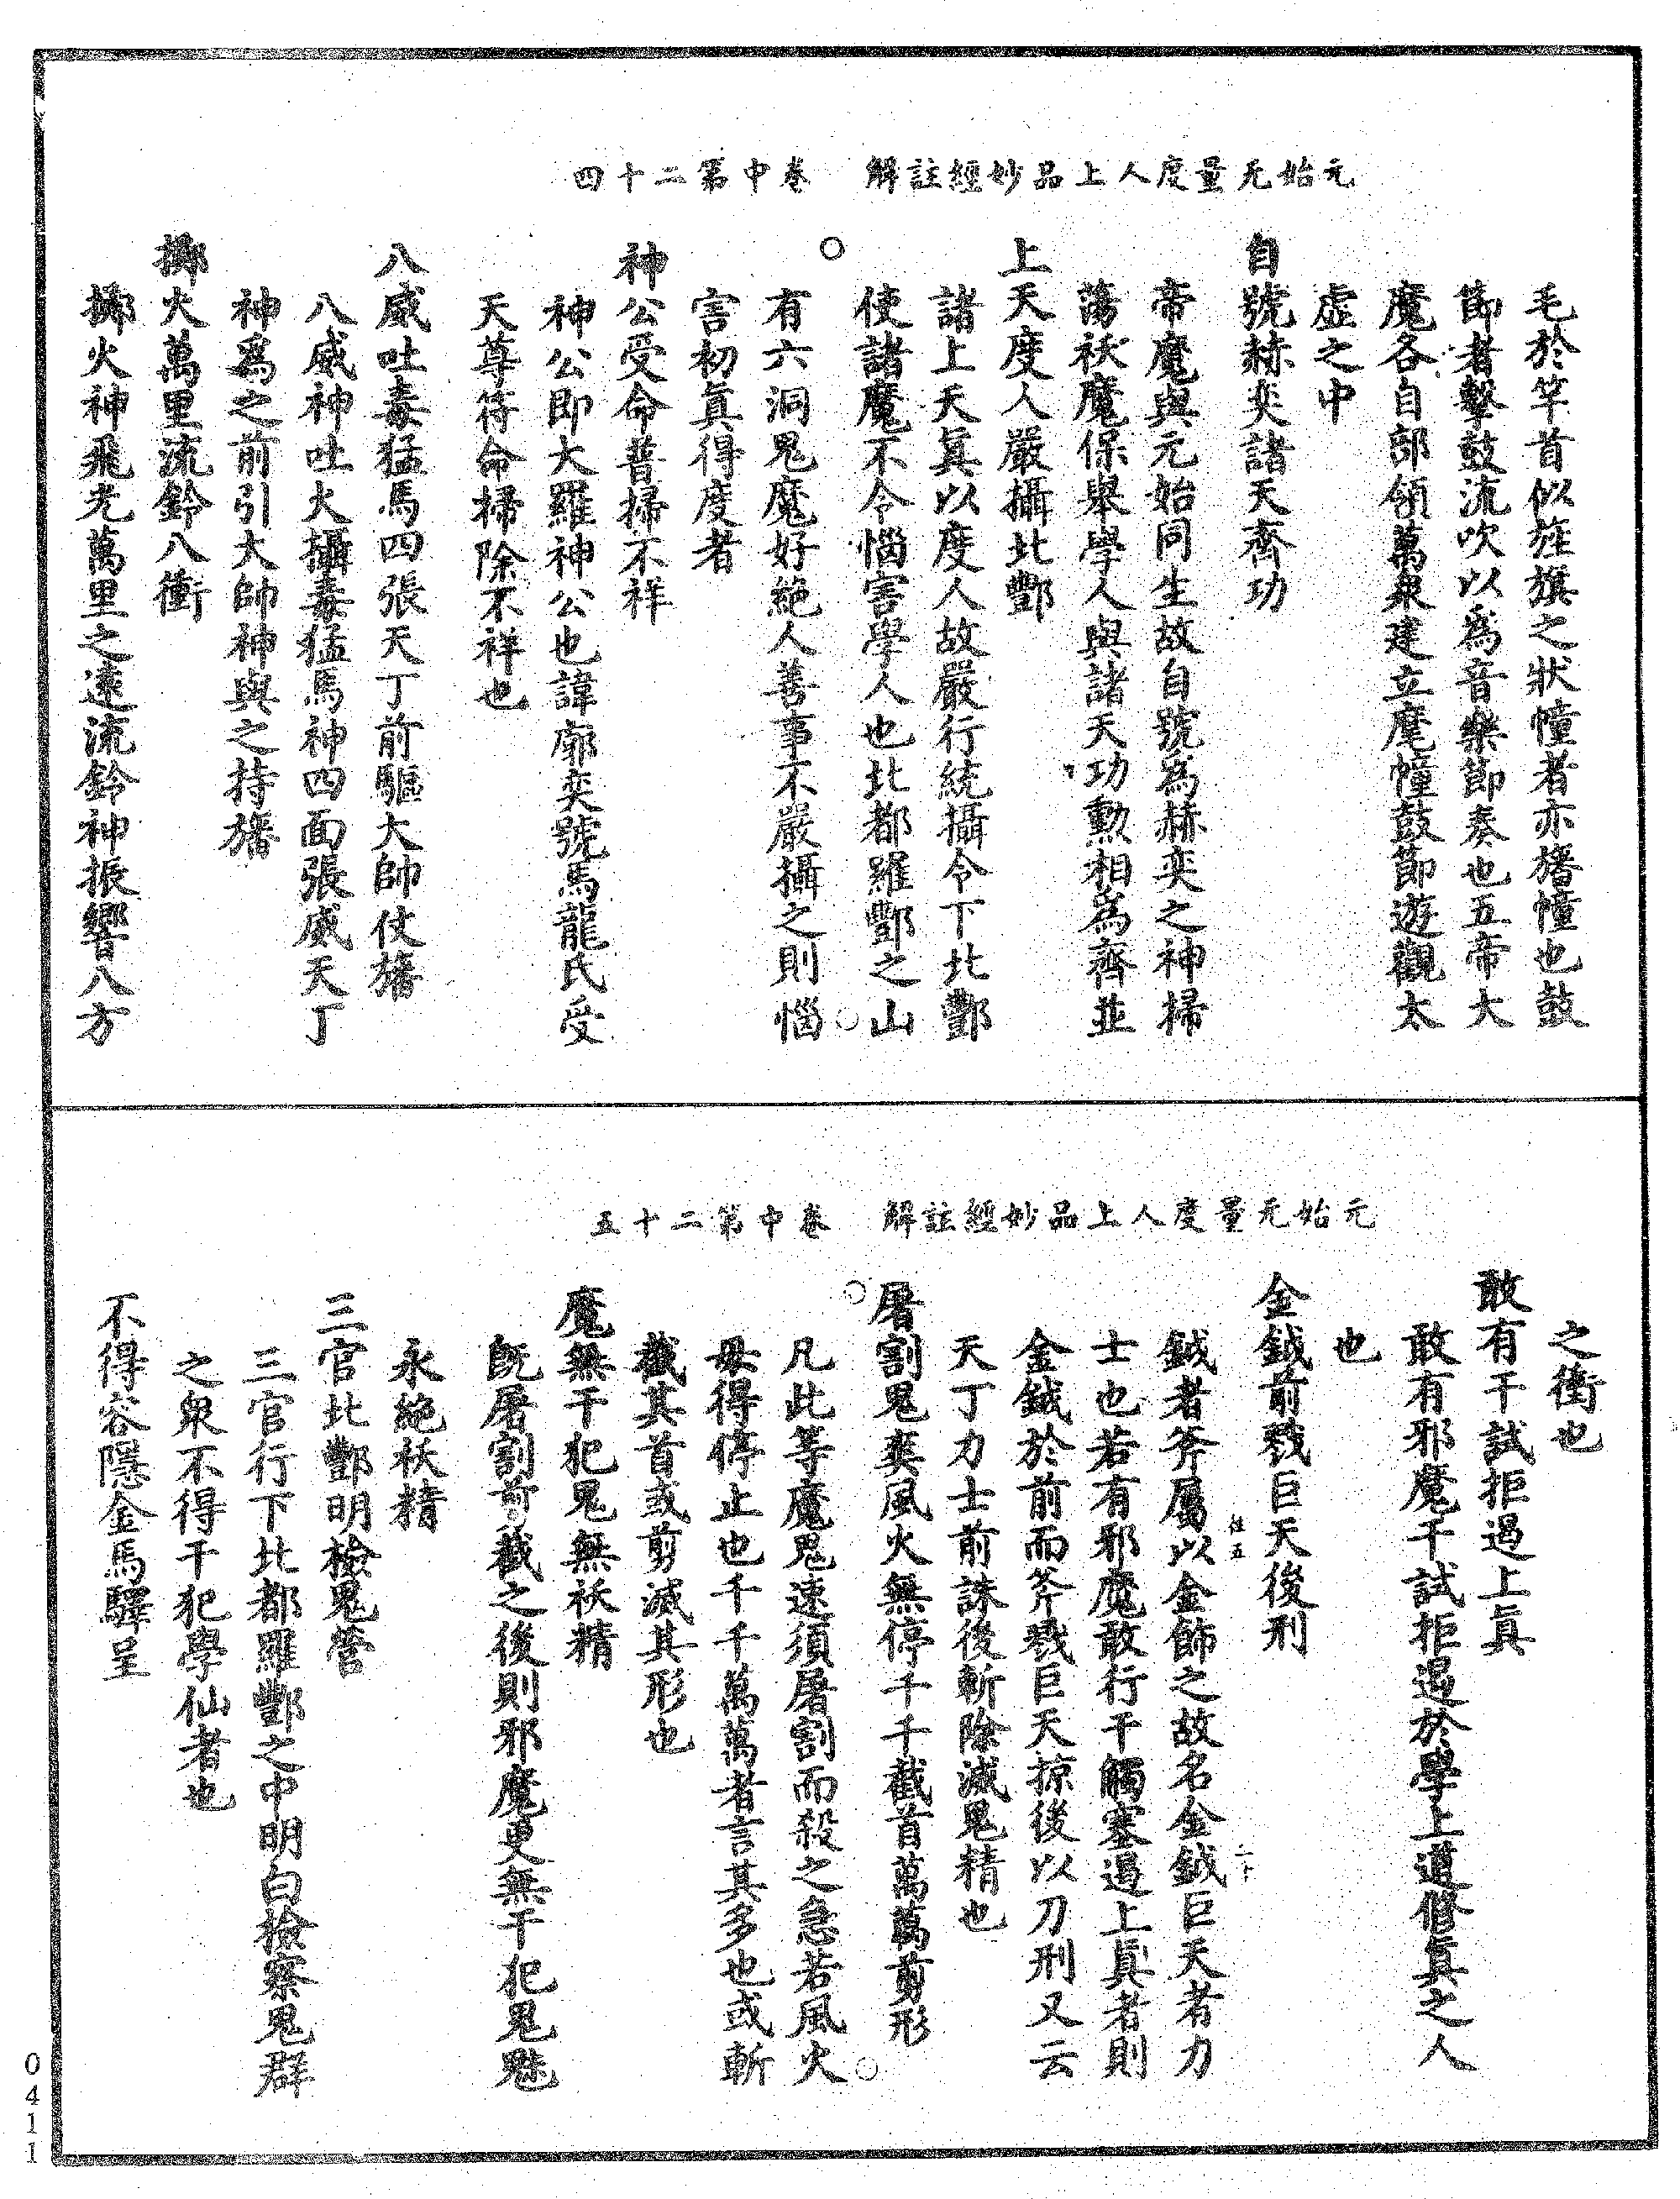 元始无量度人上品妙經註解　卷中第二十四
毛於竿首似旌旗之狀幢者亦旛幢也鼓
節者擊鼓流吹以爲音樂節奏也五帝大
魔各自部領萬衆建立麾幢鼓節遊觀太
虛之中
自號赫奕諸天齊功
帝魔與元始同生故自號爲赫奕之神掃
蕩祅魔保舉學人與諸天功勲相爲齊並
上天度人嚴攝北酆
諸上天真以度人故嚴行統攝令下北酆
使諸魔不令惱害學人也北都羅酆之山
有六洞鬼魔好絕人善事不嚴攝之則惱
害初真得度者
神公受命普掃不祥
神公即大羅神公也諱廓奕號馬龍氏受
天尊符命掃除不祥也
八威吐毒猛馬四張天丁前驅大帥仗旛
八威神吐火攝毒猛馬神四面張威天丁
神爲之前引大帥神與之持旛
擲火萬里流鈴八衝
擲火神飛光萬里之遠流鈴神振響八方
元始无量度人上品妙經註解　卷中第二十五
之衝也
敢有干試拒遏上真
敢有邪魔干試拒遏於學上道修真之人
也
金鉞前戮巨天後刑
鉞者斧屬以金飾之故名金鉞巨天者力
士也若有邪魔敢行干觸塞遏上真者則
金鉞於前而斧戮巨天掠後以刀刑又云
天丁力士前誅後斬除滅鬼精也
屠割鬼爽風火無停千千截首萬萬剪形
凡此等魔鬼速須屠割而殺之急若風火
毋得停止也千千萬萬者言其多也或斬
截其首或剪滅其形也
魔無干犯鬼無祅精
旣屠割斬截之後則邪魔更無干犯鬼魅
永絕祅精
三官北酆明檢鬼營
三官行下北都羅酆之中明白檢察鬼群
之衆不得干犯學仙者也
不得容隱金馬驛呈
0411